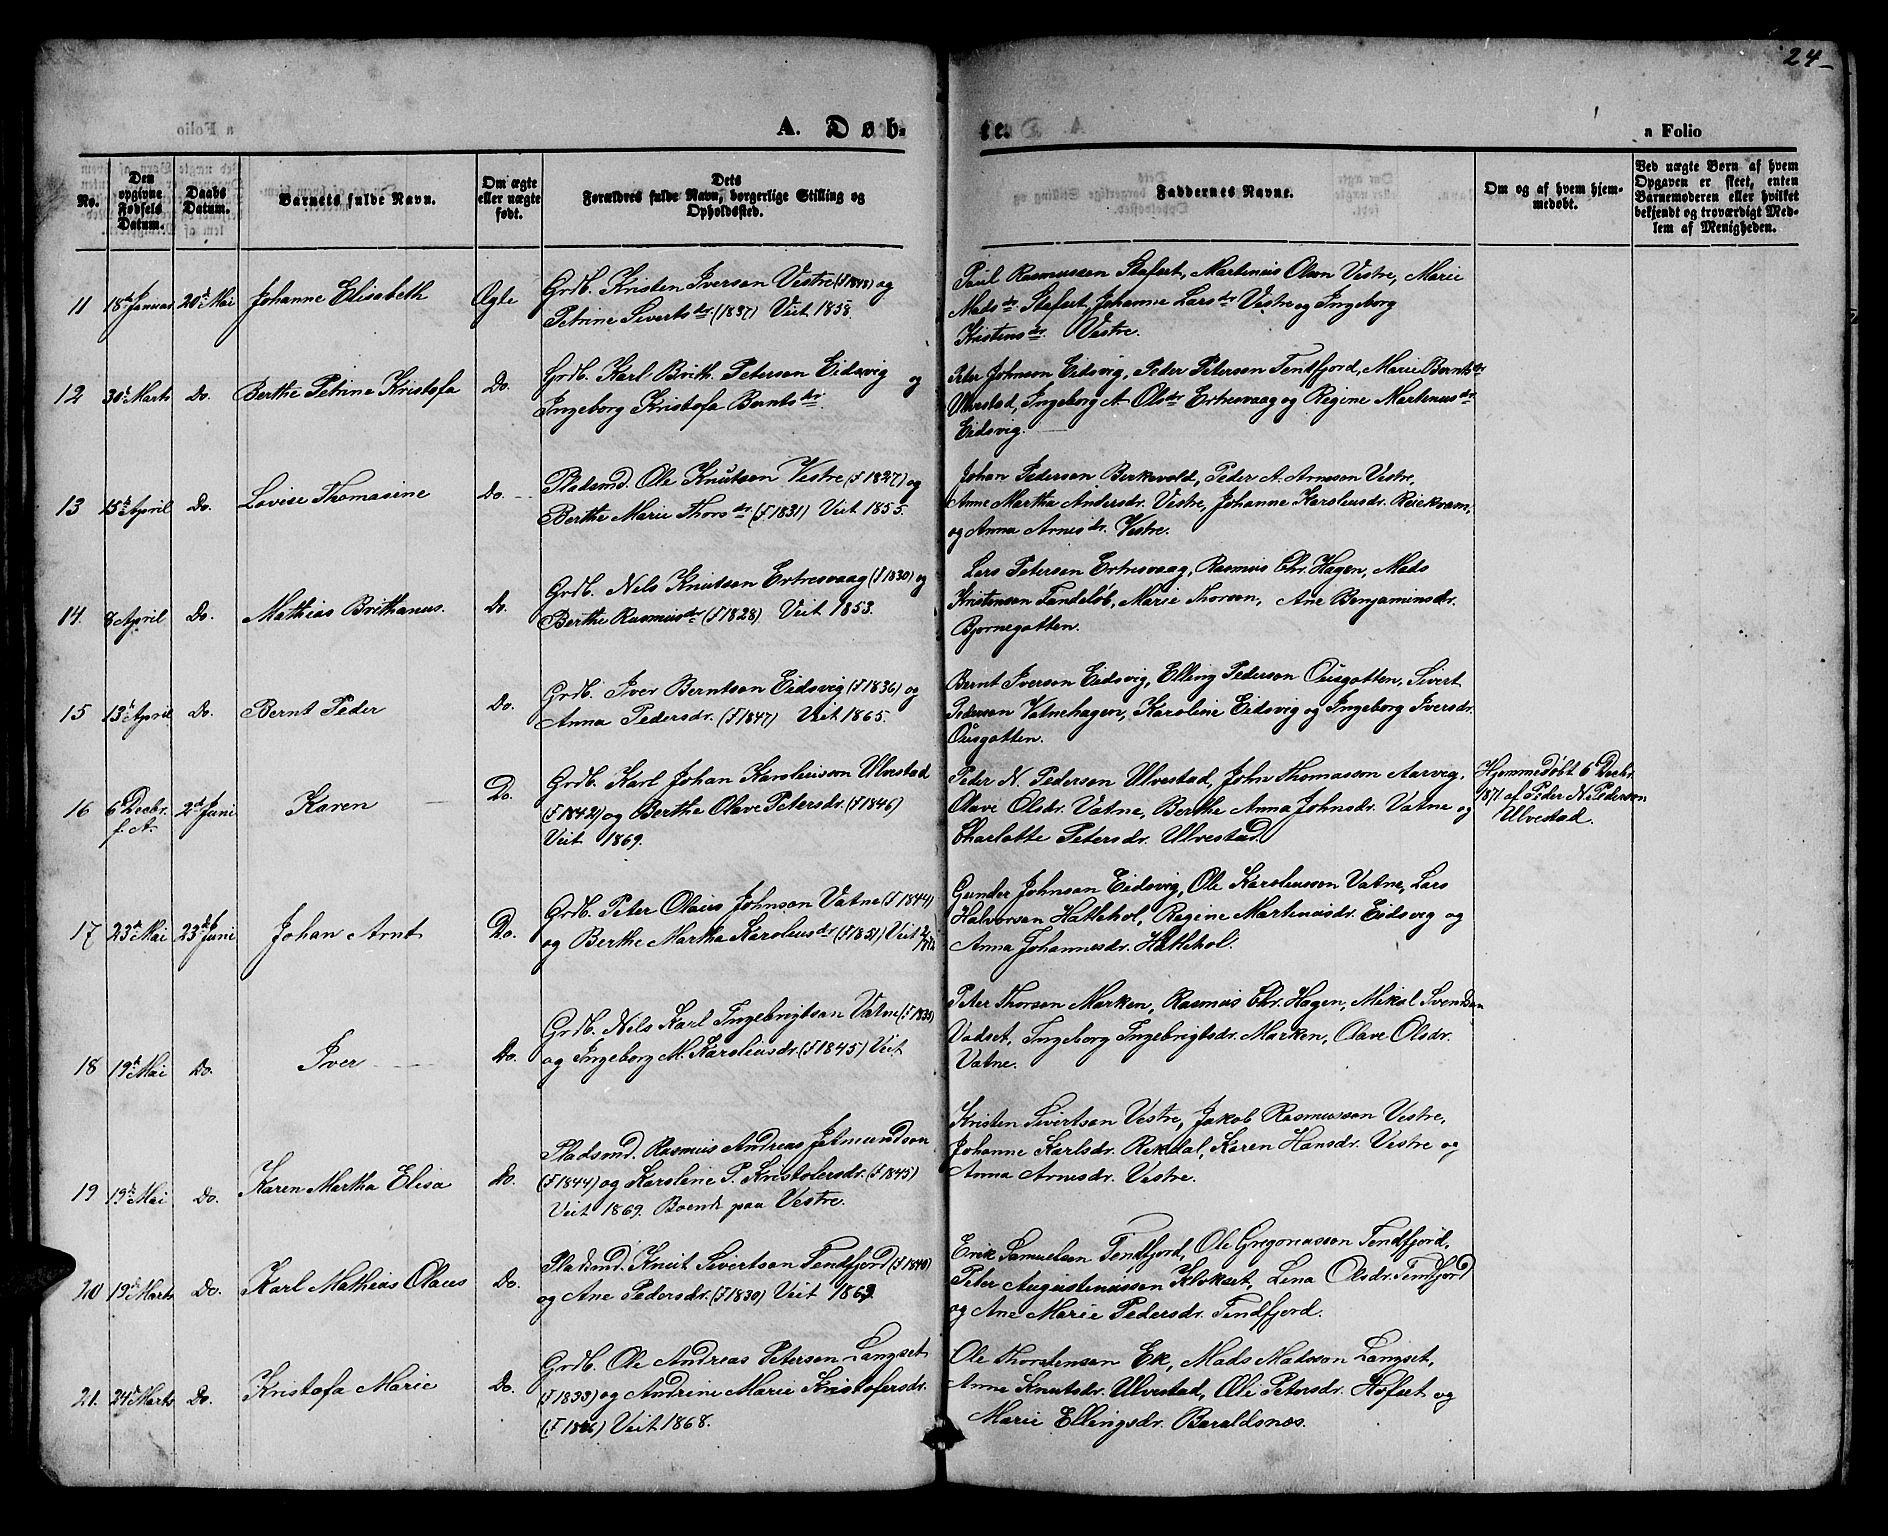 24
A. Døb-
te.
a Folio
No.
Den opgivne Fødsels Datum.
Daabs Datum.
Barnets fulde Navn.
Om ægte eller uægte født.
Dets Forældres fulde Navn, borgerlige Stilling og Opholdssted.
Faddernes Navne.
Om og af hvem hjemmedøbt.
Ved uægte Børn af hvem Opgaven er skeet, enten Barnemoderen eller hvilket bekjendt og troværdigt Medlem af Menigheden.
11 18de Januar 20de Mai Johanne Elisabeth Ægte
Grdb. Kristen Iverson Vestre (F 1848) og
Petrine Siverts dr. (1837) Viet 1858.
Paul Rasmussen Stafset, Martinus Olson Vestre, Marie
Mads dr Stafset, Johanne Lars dr Vestre og Ingeborg
Kristens dr. Vestre.
12 30de Marts Do. Berthe Petrine Kristofa Do.
Grdb. Karl Brith. Peterson Eidsvig og
Ingeborg Kristofa Bernts dr.
Peter Johnson Eidsvig, Peder Peterson Tendfjord, Marie Bernts dr
Ulvestad, Ingeborg A Ols dr Ertresvaag og Regine Martinus dr
Eidsvig.
13 15de April Do. Lovise Thomasine Do.
Pladsmd. Ole Knutson Vestre (F 1827) og
Berthe Marie Thors dr (F 1831) Viet 1855.
Johan Pederson Berkevold, Peder A. Arneson Vestre,
Anne Martha Andersdr. Vestre, Johanne Karoleusdr. Reiekvam,
og Anna Arnes dr. Vestre.
14. 8 April Do. Mathias Brithanus. Do.
Grdb. Nels Knutson Ertresvaag (F 1830) og
Berthe Rasmus dr (F 1828) Viet 1853.
Lars Peterson Ertresvaag, Rasmus Chr. Hagen, Mads
Kristenson Tandeløb, Marie Thorson, Ane Benjaminsdr.
Bjørnegotten.
15 13de April Do. Bernt Peder Do.
Grdb. Iver Berntson Eidsvig (F 1836) og
Anna Pedersdr. (F 1847) Viet 1865.
Bernt Iverson Eidsvig, Elling Pederson Ousgotten, Sivert
Pederson Vatnehagen, Karoline Eidsvig og Ingeborg Iversdr.
Ousgotten.
16 6 Decbr. f. A. 2de Juni Karen Do.
Grdb. Karl Johan Karoluison Ulvestad
(F 1842) og Berthe Olave Petersdr. (F 1846)
Viet 1869.
Peter N. Pederson Ulvestad, John Thomasson Aarvig,
Olave Olsdr. Vatne, Berthe Anna Johnsdr. Vatne og
Charlotte Petersdr. Ulvestad.
Hjemmedøbt 6 Decbr.
1871 af Peder N. Pederson
Ulvestad.
17 23de Mai 23de Juni Johan Arnt Do.
Grdb. Peter Olaus Johnson Vatne (F 1844)
og Berthe Martha Karoleus dr (F 1851) Viet
Gunder Johnson Eidsvig, Ole Karoleusson Vatne, Lars
Halvorson Hatlehol, Regine Martinusdr. Eidsvig og
Anna Johannesdr. Hatlehol.
18 19de Mai Do. Iver Do.
Grdb. Nels Karl Ingebrigtson Vatne
og Ingeborg M. Karoleusdr. (F 1845) Viet
Peter Thorson Marken, Rasmus Chr. Hagen, Mikal Svendson
Vadset, Ingeborg Ingebrigtsdr. Marken, Olave Olsdr.
Vatne.
19 19de Mai Do. Karen Martha Elisa Do.
Pladsmd. Rasmus Andreas Jetmundson
(F 1844) og Karoline P. Kristofersdr. (F 1845)
Viet 1869. Boende paa Vestre.
Kristen Sivertson Vestre, Jakob Rasmusson Vestre,
Johanne Karlsdr. Rekdal, Karen Hansdr. Vestre og
Anna Arnesdr. Vestre.
20 19de Marts Do. Karl Mathias Olaus Do.
Pladsmd. Knut Sivertson Tendfjord (F 1840)
og Ane Pedersdr. (F 1830) Viet 1863
Erik Samuelsen Tendfjord, Ole Gregoriusson Tendfjord,
Peter Augustinusson Klokset, Lena Olsdr. Tendfjord
og Ane Marie Pedersdr. Tendfjord.
21. 24de Marts Do. Kristofa Marie Do.
Grdb. Ole Andreas Peterson Langset
(F 1833) og Andrine Marie Kristofersdr.
(F 1846) Viet 1868.
Ole Thorstensen Ek, Mads Madsson Langset,
Anne Knutsdr. Ulvestad, Oli Petersdr. Hofset og
Marie Ellingsdr. Baraldsnes.